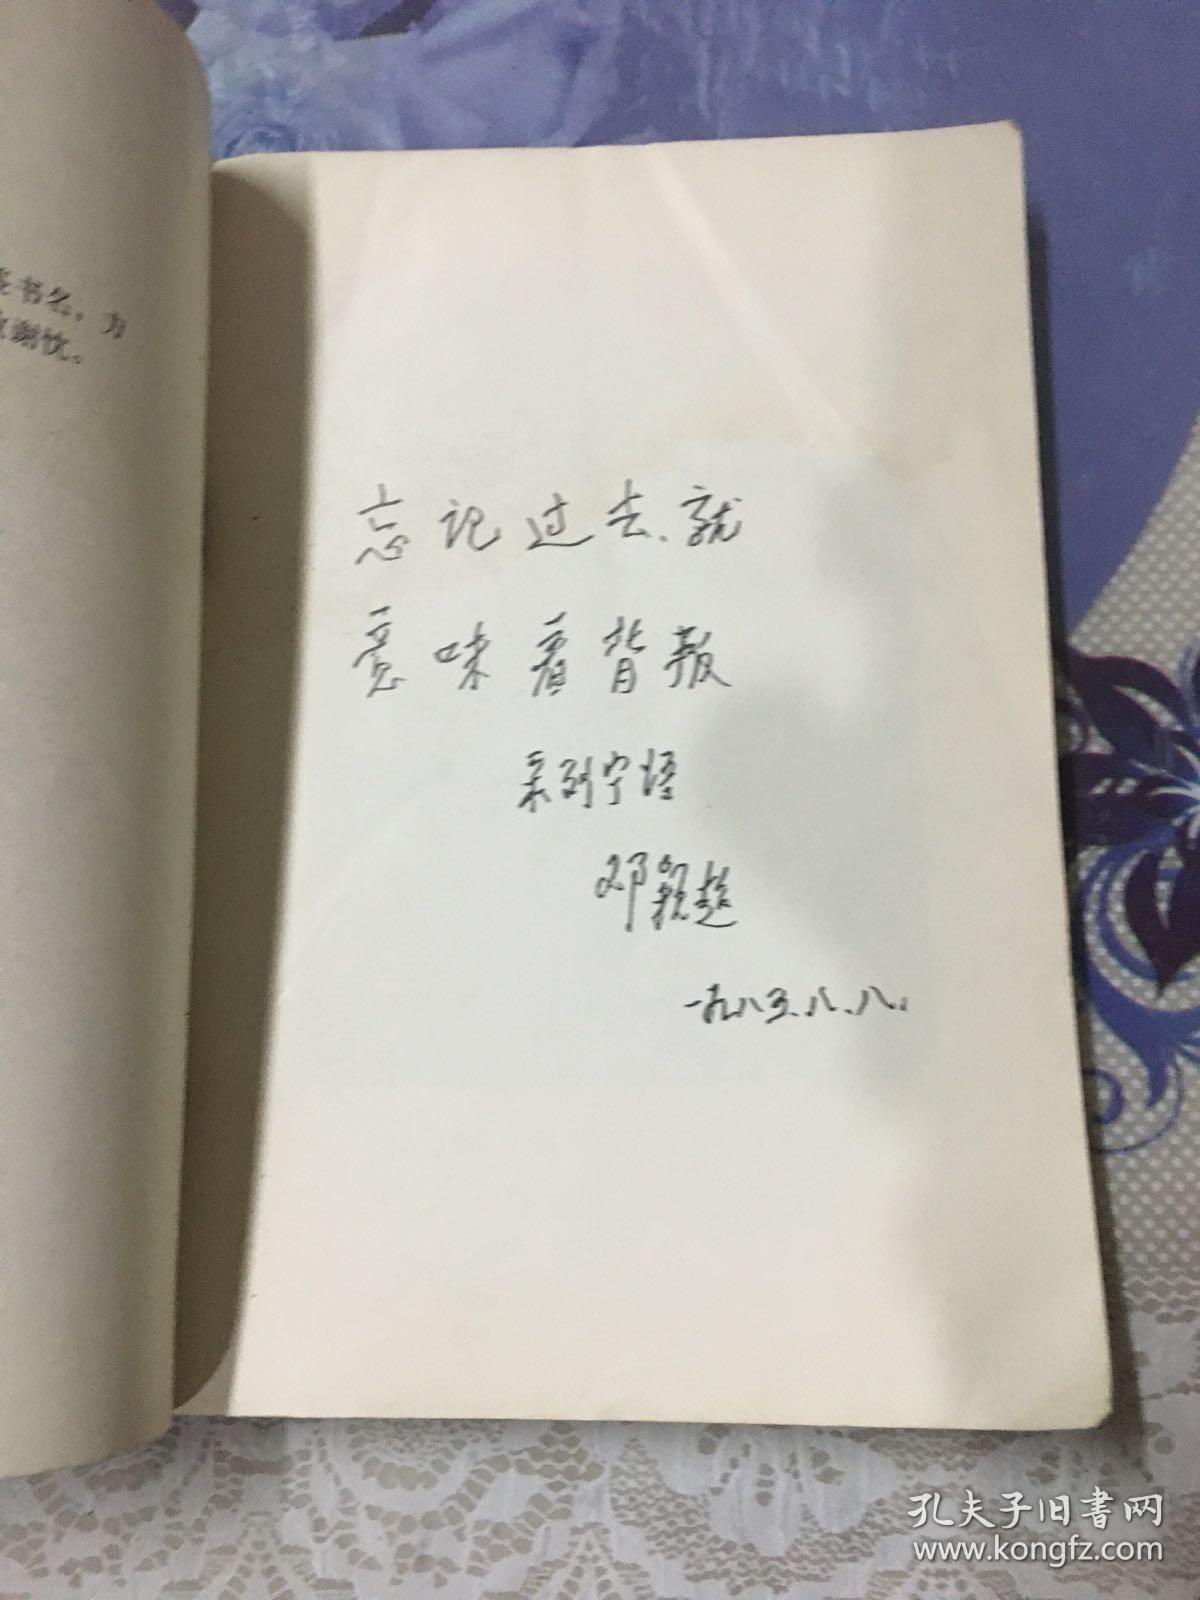 书名，方
谢忱。
忘记过去、就
意味着背叛
录列宁语
邓颖超
一九八五、八、八、
孔夫子旧书网
www.kongfz.com